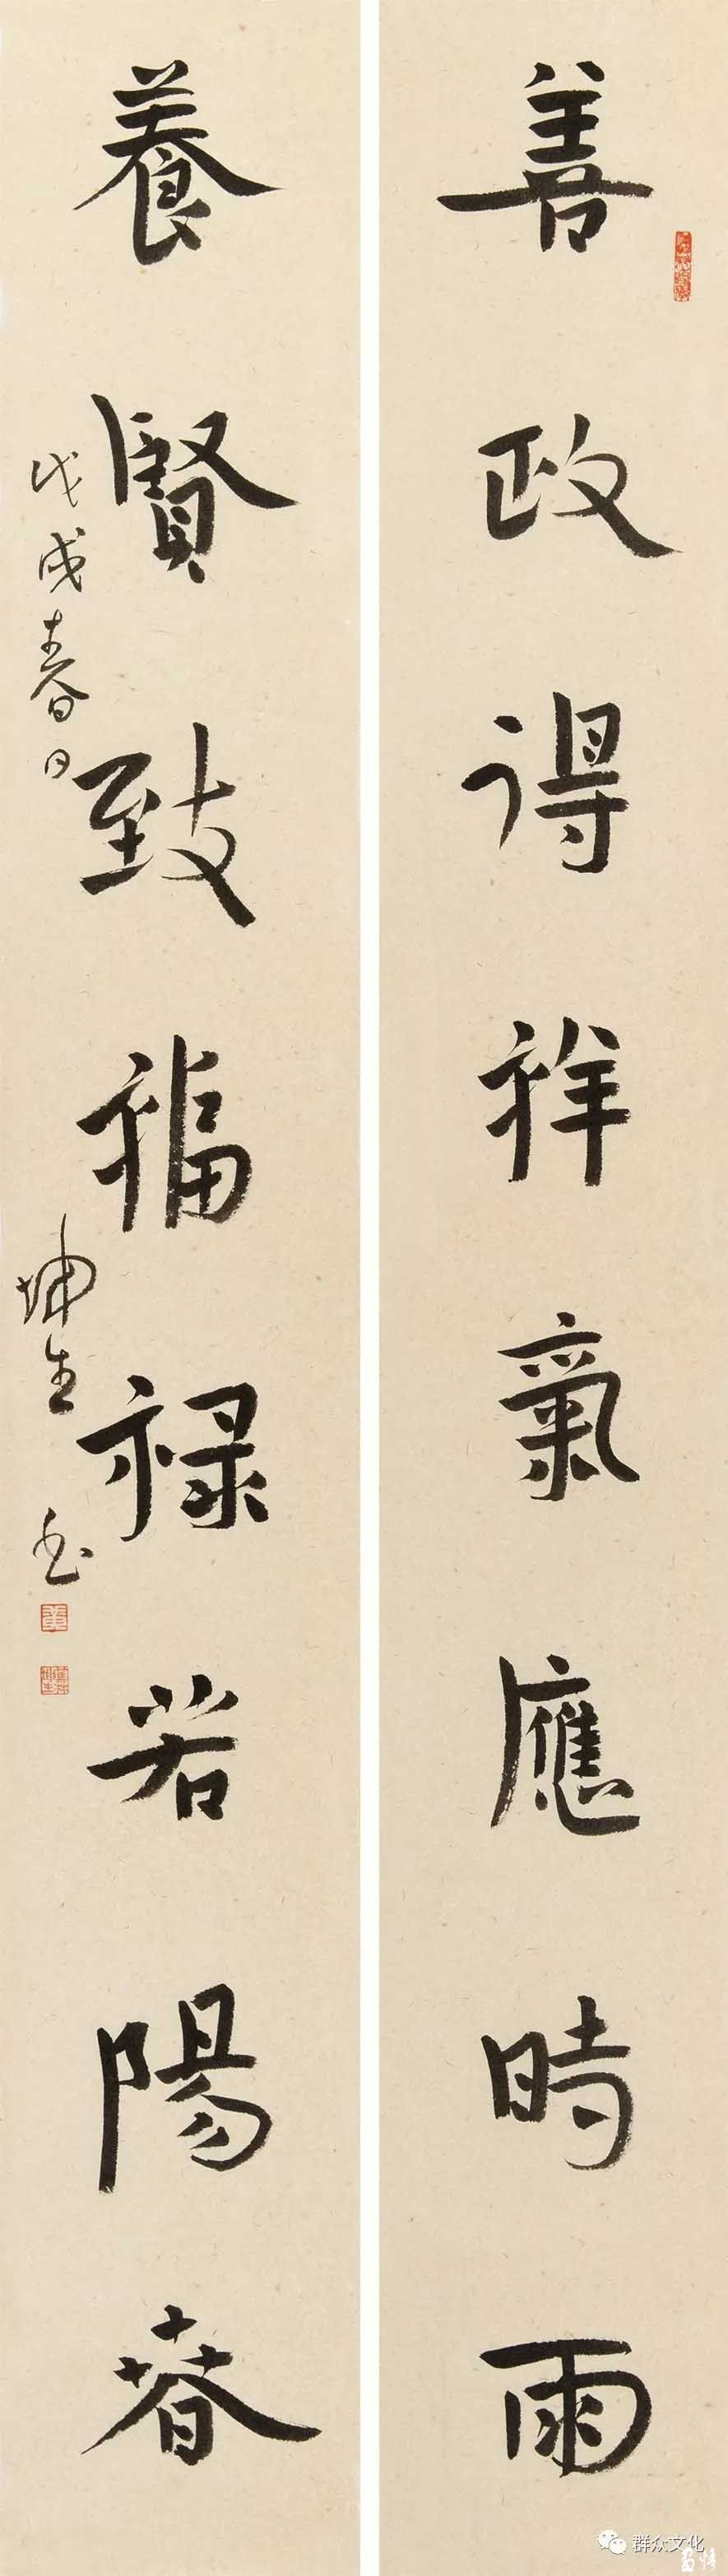 善政得祥氣應時雨
養賢致福禄若陽春
戊戌春日
坤生書
群众文化